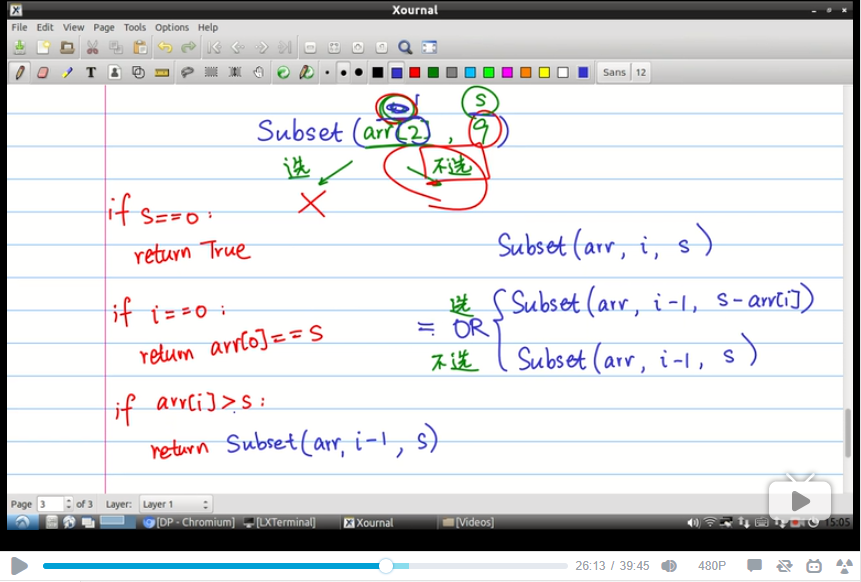 Xournal
File Edit View Page Tools Options Help
Sans 12
S
Subset(arr[2], 9)
选 不选
if s==0:
return True
Subset(arr, i, s)
if i==0:
return arr[0]==s
选 Subset(arr, i-1, s-arr[i])
= OR
不选 Subset(arr, i-1, s)
if arr[i]>s:
return Subset(arr, i-1, s)
Page 3 of 3 Layer: Layer 1
[DP - Chromium] [LXTerminal] Xournal [Videos] 15:05
26:13 / 39:45 480P